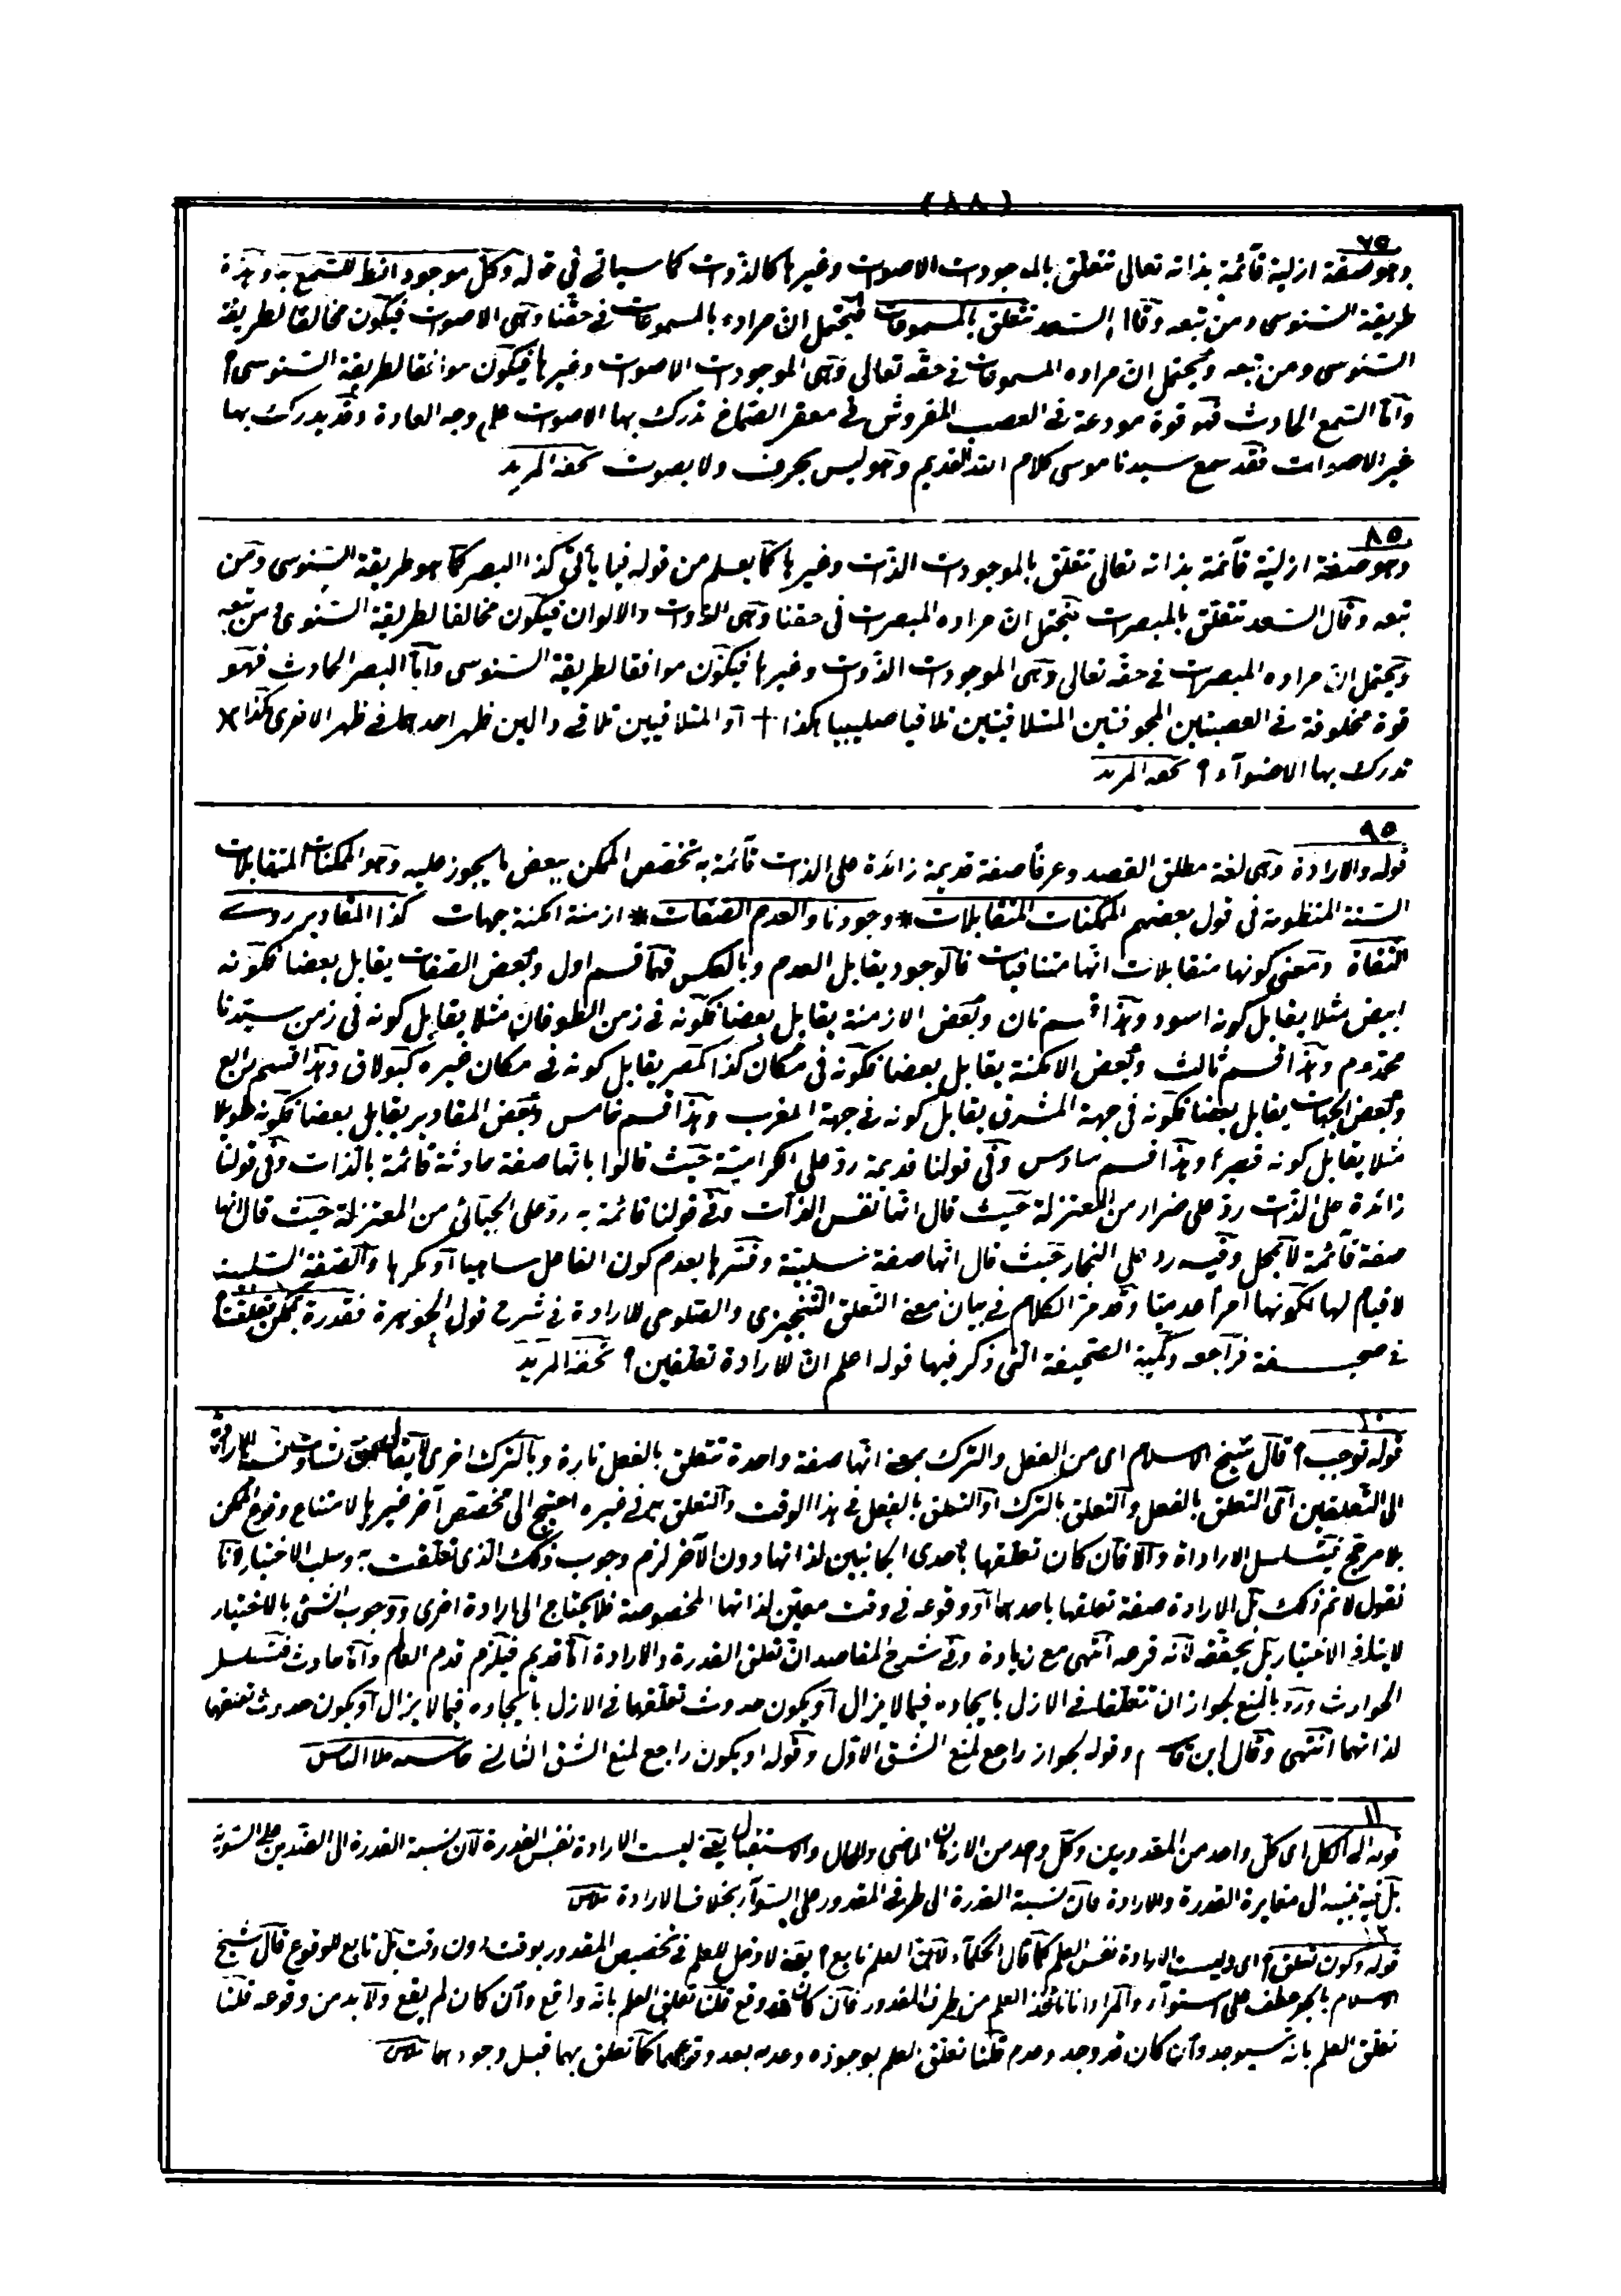 (٨٨)
٧٥
وهو صفة ازلية قآئمة بذاته تعالى تتعلق بالموجودات الاصوات وغيرها كالذوات كما سيأتى فى قوله وكل موجود انط للسمع به وهذه
طريقة السنوسى ومن تبعه وقال السعد تتعلق بالمسموعات فيحتمل ان مراده بالمسموعات فى حقنا وهى الاصوات فيكون مخالفا لطريقة
السنوسى ومن تبعه ويحتمل ان مراده المسموعات فى حقه تعالى وهى الموجودات الاصوات وغيرها فيكون موافقا لطريقة السنوسى
وأما السمع الحادث فهو قوة مودعة فى العصب المفروش فى مقعر الصماخ تدرك بها الاصوات على وجه العادة وقد يدرك بها
غير الاصوات فقد سمع سيدنا موسى كلام الله القديم وهو ليس بحرف ولا بصوت تحفة المريد
٨٥
وهو صفة ازلية قآئمة بذاته تعالى تتعلق بالموجودات الذوات وغيرها كما يعلم من قوله فيما يأتى كذا البصر كما هو طريقة السنوسى ومن
تبعه وقال السعد تتعلق بالمبصرات فيحتمل ان مراده المبصرات فى حقنا وهى الذوات والالوان فيكون مخالفا لطريقة السنوسى ومن تبعه
ويحتمل ان مراده المبصرات فى حقه تعالى وهى الموجودات الذوات وغيرها فيكون موافقا لطريقة السنوسى وأما البصر الحادث فهو
قوة مخلوقة فى العصبتين المجوفتين المتلاقيتين تلاقيا صليبيا هكذا + أو المتلاقيتين تلاقى دالين ظهر احدهما فى ظهر الاخرى هكذا X
تدرك بها الاضوآء تحفة المريد
٩٥
قوله والارادة وهى لغة مطلق القصد وعرفا صفة قديمة زائدة على الذات قآئمة به تخصص الممكن ببعض ما يجوز عليه وهو الممكنات المتقابلات
الستة المنظومة فى قول بعضهم الممكنات المتقابلات * وجودنا والعدم الصفات * ازمنة امكنة جهات كذا المقادير روى
الثقاة ومعنى كونها متقابلات انها متنافيات فالوجود يقابل العدم وبالعكس فهما قسم اول وبعض الصفات يقابل بعضا فكونه
ابيض مثلا يقابل كونه اسود وهذا قسم ثان وبعض الازمنة يقابل بعضا فكونه فى زمن الطوفان مثلا يقابل كونه فى زمن سيدنا
محمد وهذا قسم ثالث وبعض الامكنة يقابل بعضا فكونه فى مكان كذا كمصر يقابل كونه فى مكان غيره كبولاق وهذا قسم رابع
وبعض الجهات يقابل بعضا فكونه فى جهة المشرق يقابل كونه فى جهة المغرب وهذا قسم خامس وبعض المقادير يقابل بعضا فكونه طويلا
مثلا يقابل كونه قصيرا وهذا قسم سادس وفى قولنا قديمة رد على الكرامية حيث قالوا بانها صفة حادثة قائمة بالذات وفى قولنا
زائدة على الذات رد على ضرار من المعتزلة حيث قال انها نفس الذات وفى قولنا قائمة به رد على الجبائى من المعتزلة حيث قال انها
صفة قآئمة لا بمحل وفيه رد على النجار حيث قال انها صفة سلبية وفسرها بعدم كون الفاعل ساهيا أو مكرها والصفة السلبية
لا قيام لها لكونها امرا عدميا وقد مر الكلام فى بيان معنى التعلق التنجيزى والصلوحى للارادة فى شرح قول الجوهرة فقدرة بممكن تعلقت
فى صحيفة فراجعه وكمية الصحيفة التى ذكر فيها قوله اعلم ان للارادة تعلقين تحفة المريد
١٠
قوله توجب قال شيخ الاسلام اى من الفعل والترك بمعنى انها صفة واحدة تتعلق بالفعل تارة وبالترك اخرى لا يقال تساوت نسبة الارادة
الى التعلقين اى التعلق بالفعل والتعلق بالترك او التعلق بالفعل فى هذا الوقت والتعلق به فى غيره احتيج الى مخصص آخر غيرها لامتناع وقوع الممكن
بلا مرجح فيتسلسل الارادة والا فان كان تعلقها باحدى الجانبين لذاتها دون الآخر لزم وجوب ذلك الذى تعلقت به وسلب الاختيار لانا
نقول لا نم ذلك بل الارادة صفة تعلقها باحدهما او وقوعه فى وقت معين لذاتها المخصوصة فلا يحتاج الى ارادة اخرى ووجوب الشئ بالاختيار
لا ينافى الاختيار بل يحققه لانه فرعه انتهى مع زيادة وفى شرح المقاصد ان تعلق القدرة والارادة اما قديم فيلزم قدم العالم واما حادث فتسلسل
الحوادث ورد بالمنع لجواز ان تتعلقا فى الازل بايجاده فيما لا يزال او يكون حدوث تعلقهما فى الازل بايجاده فيما لا يزال او يكون حدوث تعلقها
لذاتهما انتهى وقال ابن قاسم وقوله لجواز راجع لمنع الشق الاول وقوله او يكون راجع لمنع الشق الثانى
١١
قوله الى الكل اى كل واحد من المقدورين وكل واحد من الازمان الماضى والحال والاستقبال يعنى ليست الارادة نفس القدرة لان نسبة القدرة الى الضدين على السوية
بل فيه تنبيه الى مغايرة القدرة وللارادة فان نسبة القدرة الى طرفى المقدور على السوآء بخلاف الارادة
١٢
قوله وكون تعلق اى وليست الارادة نفس العلم كما قال الحكمآء لان العلم تابع يعنى لا دخل للعلم فى تخصيص المقدور بوقت دون وقت بل تابع للوقوع قال شيخ
الاسلام بالجر عطف على استوآء والمراد انا نأخذ العلم من طرف المقدور فان كان قد وقع قلنا تعلق العلم بانه واقع وان كان لم يقع ولا بد من وقوعه قلنا
تعلق العلم بانه سيوجد وان كان قد وجد وعدم قلنا تعلق العلم بوجوده وعدمه بعد وقوعهما كما تعلق بهما قبل وجودهما